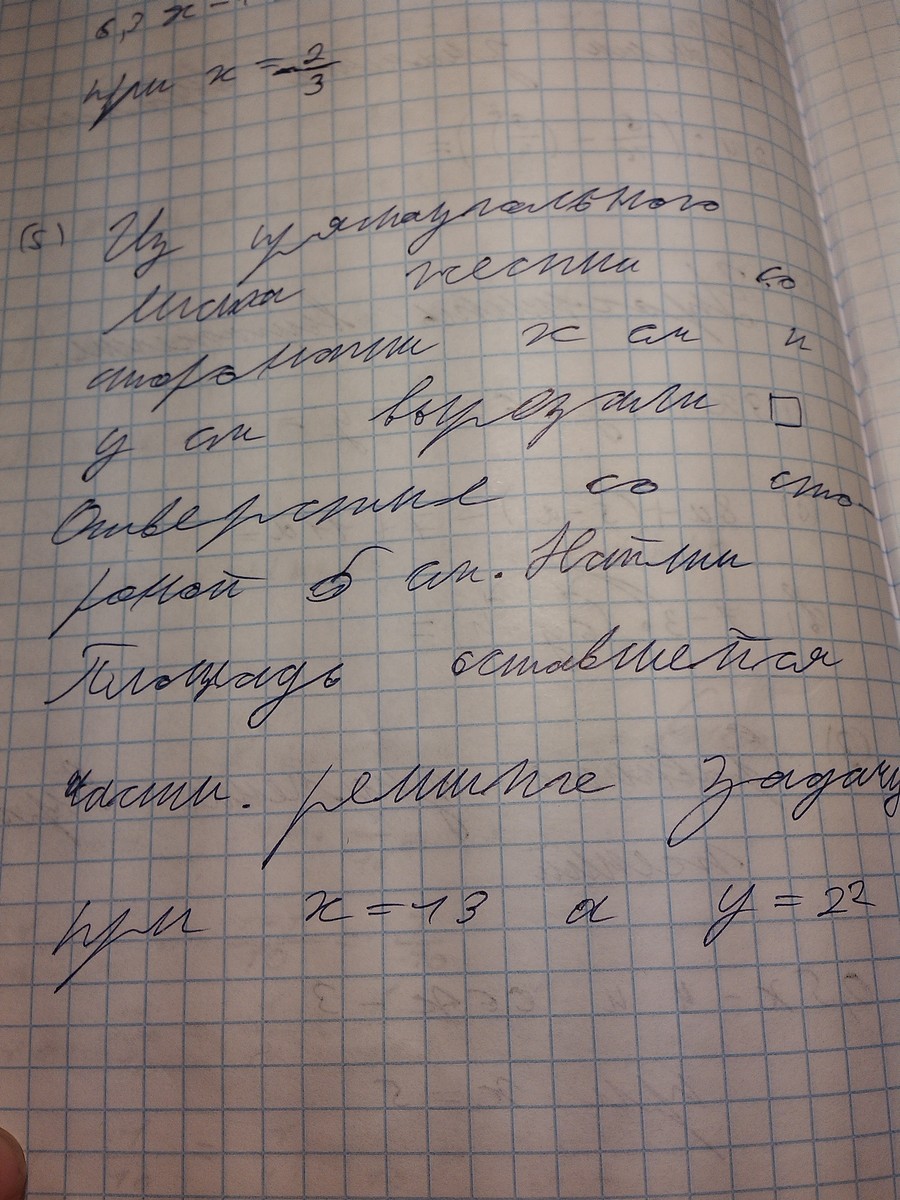 6,3 x -
при x = - 2/3
(5) Из прямоугольного
листа жести со
сторонами x см и
y см вырезали □
Отверстие со сто-
роной 5 см. Найти
Площадь оставшейся
части. решите задачу
при x = 13 а y = 22